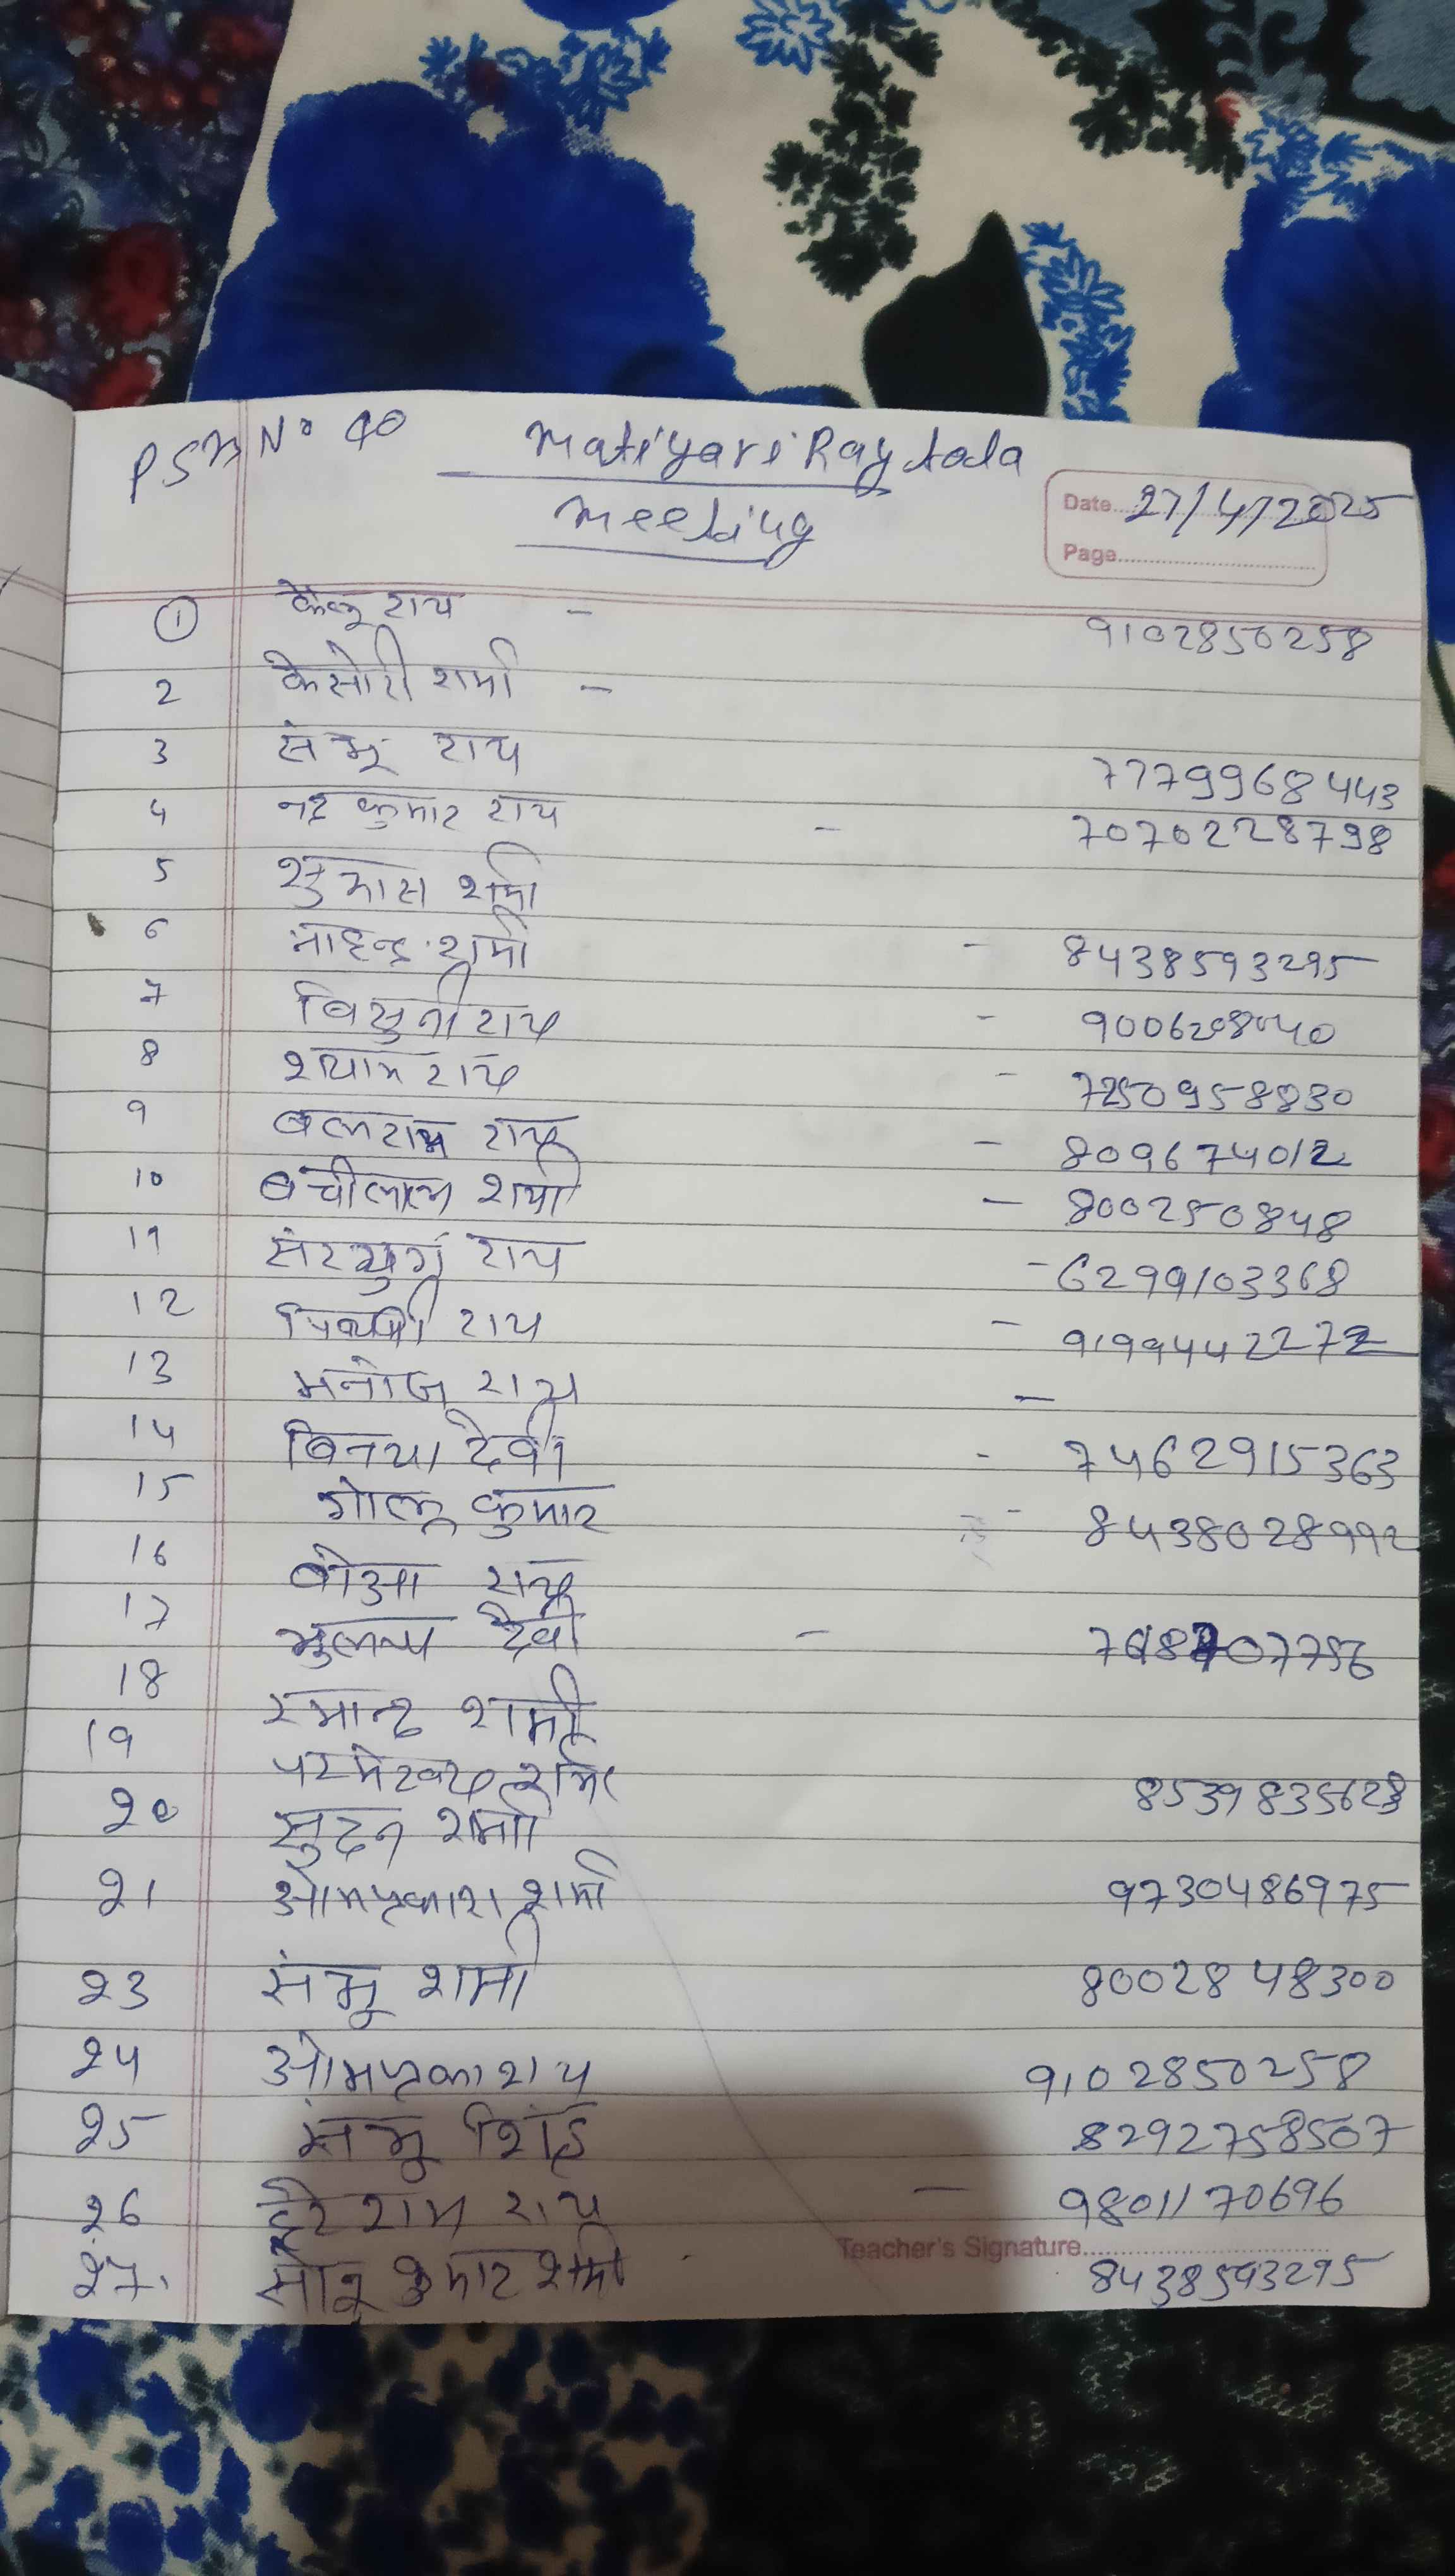 PSM No 40 Matiyari Ray tola
Meeting
Date 27/4/2025
Page
1 केलू राय - 9102850258
2 केसोरी शर्मा -
3 संभू राय 7779968443
4 नद कुमार राय - 7070228798
5 शुभास शर्मा
6 माहन्द्र शर्मा - 8438593295
7 विसुनी राय - 9006208040
8 श्याम राय - 7250958830
9 बलराम राय - 809674012
10 बचीलाल शर्मा - 8002250848
11 राय - 6299103368
12 राय - 9199442272
13 मनोज राय -
14 विनया देवी - 7462915363
15 गोलू कुमार - 8438028992
16 बोआ राय
17 देवी -
18 रमान्द शर्मा
19 शर्मा 8539835628
20 सुदन शर्मा
21 ओमप्रकाश शर्मा 9730486975
23 संभू शर्मा 8002848300
24 ओमप्रकाश राय 9102850258
25 संभू सिंह 8292758507
26 हरे राम राय - 9801170696
Teacher's Signature
27. सोनू कुमार शर्मा 8438593295